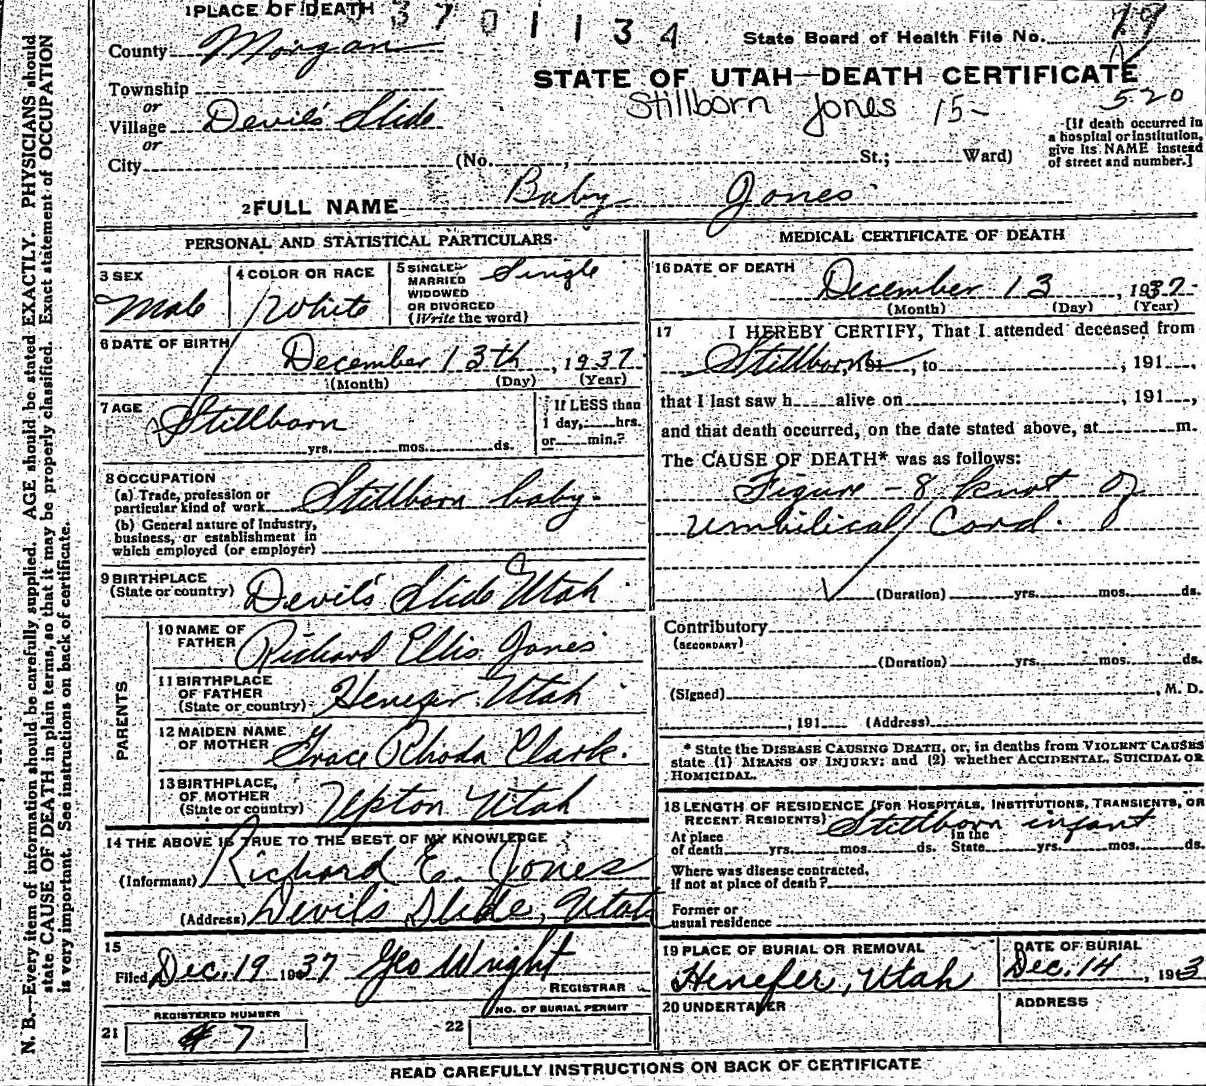 1 PLACE OF DEATH 3 7 0 1 1 3 4
County Morgan
State Board of Health File No. 79
STATE OF UTAH—DEATH CERTIFICATE
Township
or
Village Devil's Slide
or
City (No. , St.; Ward)
Stillborn Jones 15- 520
[If death occurred in
a hospital or institution,
give its NAME instead
of street and number.]
2 FULL NAME Baby Jones
PERSONAL AND STATISTICAL PARTICULARS
3 SEX
Male
4 COLOR OR RACE
White
5 SINGLE, Single
MARRIED
WIDOWED
OR DIVORCED
(Write the word)
6 DATE OF BIRTH
December 13th, 1937
(Month) (Day) (Year)
7 AGE
Stillborn
yrs. mos. ds.
If LESS than
1 day, hrs.
or min.?
8 OCCUPATION
(a) Trade, profession or
particular kind of work Stillborn baby-
(b) General nature of Industry,
business, or establishment in
which employed (or employer)
9 BIRTHPLACE
(State or country) Devil's Slide Utah
PARENTS
10 NAME OF
FATHER Richard Ellis Jones
11 BIRTHPLACE
OF FATHER
(State or country) Henefer Utah
12 MAIDEN NAME
OF MOTHER Grace Rhoda Clark.
13 BIRTHPLACE,
OF MOTHER
(State or country) Upton Utah
14 THE ABOVE IS TRUE TO THE BEST OF MY KNOWLEDGE
(Informant) Richard E. Jones
(Address) Devil's Slide, Utah
15
Filed Dec. 19 1937 Geo Wright
REGISTRAR
REGISTERED NUMBER
21 # 7
NO. OF BURIAL PERMIT
22
MEDICAL CERTIFICATE OF DEATH
16 DATE OF DEATH
December 13, 1937
(Month) (Day) (Year)
17 I HEREBY CERTIFY, That I attended deceased from
Stillborn, 191 , to , 191 ,
that I last saw h alive on , 191 ,
and that death occurred, on the date stated above, at m.
The CAUSE OF DEATH* was as follows:
Figure - 8 knot of
umbilical Cord.
(Duration) yrs. mos. ds.
Contributory
(SECONDARY)
(Duration) yrs. mos. ds.
(Signed) , M. D.
, 191 (Address)
* State the DISEASE CAUSING DEATH, or, in deaths from VIOLENT CAUSES
state (1) MEANS OF INJURY; and (2) whether ACCIDENTAL, SUICIDAL OR
HOMICIDAL.
18 LENGTH OF RESIDENCE (FOR HOSPITALS, INSTITUTIONS, TRANSIENTS, OR
RECENT RESIDENTS) Stillborn infant
At place In the
of death yrs. mos. ds. State yrs. mos. ds.
Where was disease contracted,
If not at place of death?
Former or
usual residence
19 PLACE OF BURIAL OR REMOVAL
Henefer, Utah
DATE OF BURIAL
Dec. 14, 193
20 UNDERTAKER
ADDRESS
READ CAREFULLY INSTRUCTIONS ON BACK OF CERTIFICATE
N. B.—Every item of information should be carefully supplied. AGE should be stated EXACTLY. PHYSICIANS should
state CAUSE OF DEATH in plain terms, so that it may be properly classified. Exact statement of OCCUPATION
is very important. See instructions on back of certificate.